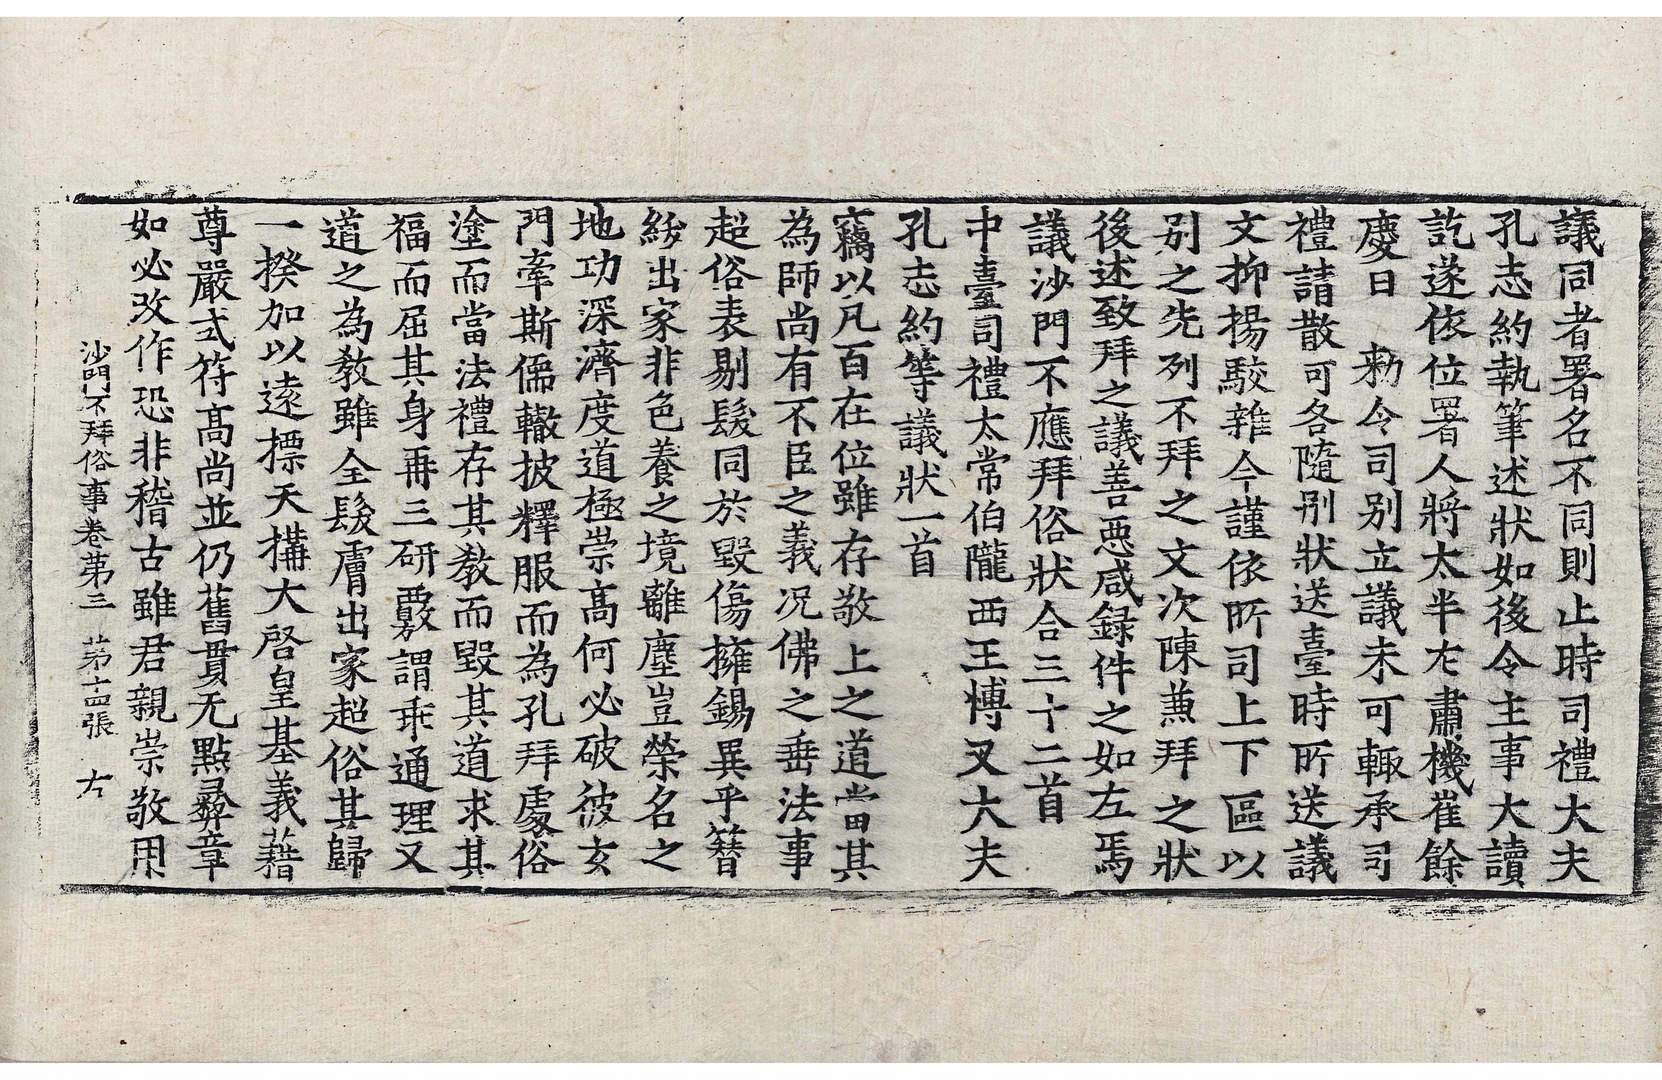 議同者署名不同則止時司禮大夫
孔志約執筆述狀如後令主事大讀
訖遂依位署人將太半左肅機崔餘
慶曰　勑令司别立議未可輙承司
禮請散可各隨别狀送臺時所送議
文抑揚駮雜今謹依所司上下區以
别之先列不拜之文次陳兼拜之狀
後述致拜之議善惡咸録件之如左焉
議沙門不應拜俗狀合三十二首
中臺司禮太常伯隴西王博叉大夫
孔志約等議狀一首
竊以凡百在位雖存敬　上之道當其
為師尚有不臣之義况佛之垂法事
超俗表剔髮同於毀傷擁錫異乎簪
紱出家非色養之境離塵豈榮名之
地功深濟度道極崇髙何必破彼玄
門牽斯儒轍披釋服而為孔拜處俗
塗而當法禮存其教而毀其道求其
福而屈其身再三研覈謂乖通理又
道之為教雖全髮膚出家超俗其歸
一揆加以遠標天構大啓皇基義藉
尊嚴式符髙尚並仍舊貫无點彝章
如必改作恐非稽古雖君親崇敬用
沙門不拜俗事卷第三　第十四張　左